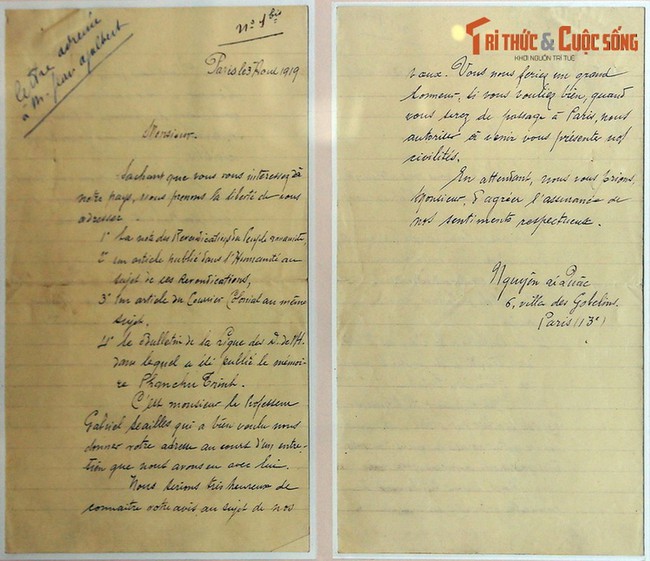 No 1 bis
lettre adressée
à M. Jean Ajalbert
Paris le 3 Août 1919
Monsieur
Sachant que vous vous interessez à
notre pays, nous prenons la liberté de vous
adresser
1° La note des Revendications du Peuple annamite
2° un article publié dans l'Humanité au
sujet de ses revendications,
3° Un article du Courrier Colonial au même
sujet.
4° le Bulletin de la Ligue des D. de l'H.
dans lequel a été publié le mémoi-
re Phanchu Trinh.
C'est monsieur le Professeur
Gabriel Seailles qui a bien voulu nous
donner votre adresse au cours d'un entre-
tien que nous avons eu avec lui.
Nous serions très heureux de
connaître votre avis au sujet de nos
TRI THỨC & CUỘC SỐNG
KHƠI NGUỒN TRI TUỆ
vaux. Vous nous feriez un grand
honneur, si vous vouliez bien, quand
vous serez de passage à Paris, nous
autoriser à venir vous présenter nos
civilités.
En attendant, nous vous prions,
Monsieur, d'agréer l'assurance de
nos sentiments respectueux.
Nguyên ái Quâc
6, villa des Gobelins
Paris (13e)